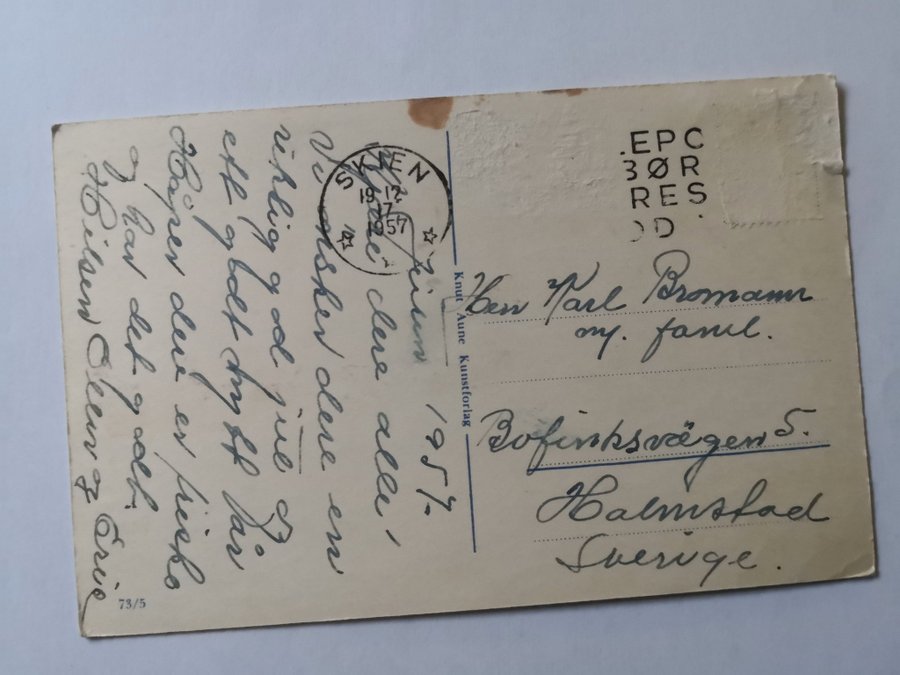 1957.
Kjære dere alle!
Vi ønsker dere en
riktig god jul og
ett godt nytt år
Håper dere er friske
og har det godt.
Hilsen og
SKIEN
19 12
17
1957
Knut Aune Kunstforlag
EPC
BØR
RES
OD
Herr Karl Bromann
m. famil.
Bofinksvägen 5.
Halmstad
Sverige.
73/5